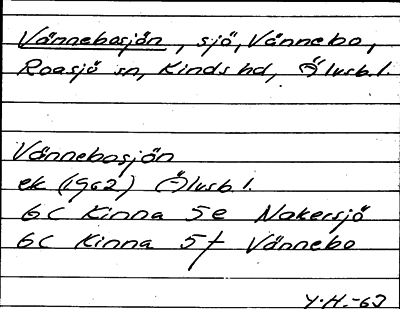 Vännebosjön, sjö, Vännebo,
Roasjö sn, Kinds hd, Älvsb.l.
Vännebosjön
ek (1962) Älvsb.l.
6C Kinna 5e Nakersjö
6C Kinna 5f Vännebo
Y.H.-63